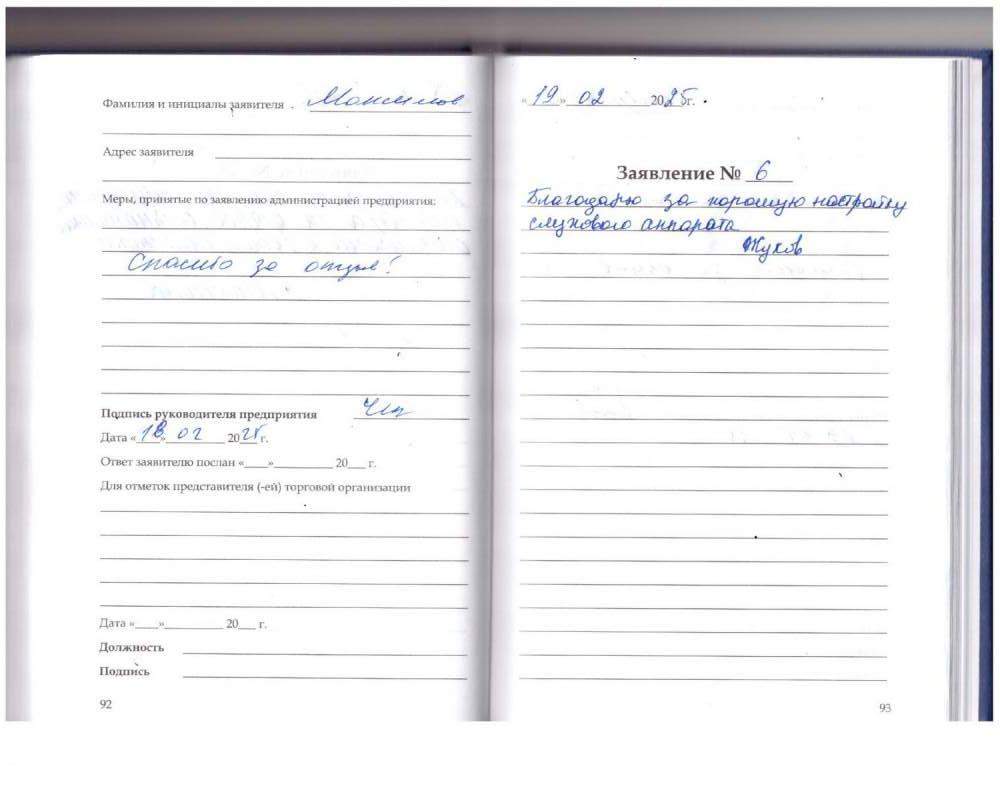 Фамилия и инициалы заявителя
Адрес заявителя
Меры, принятые по заявлению администрацией предприятия:
Спасибо за отзыв!
Подпись руководителя предприятия
Дата «18» 02 2025г.
Ответ заявителю послан «____»__________ 20___ г.
Для отметок представителя (-ей) торговой организации
Дата «____»__________ 20___ г.
Должность
Подпись
92
«19» 02 2025г.
Заявление № 6
Благодарю за хорошую настройку
слухового аппарата
Жуков
93